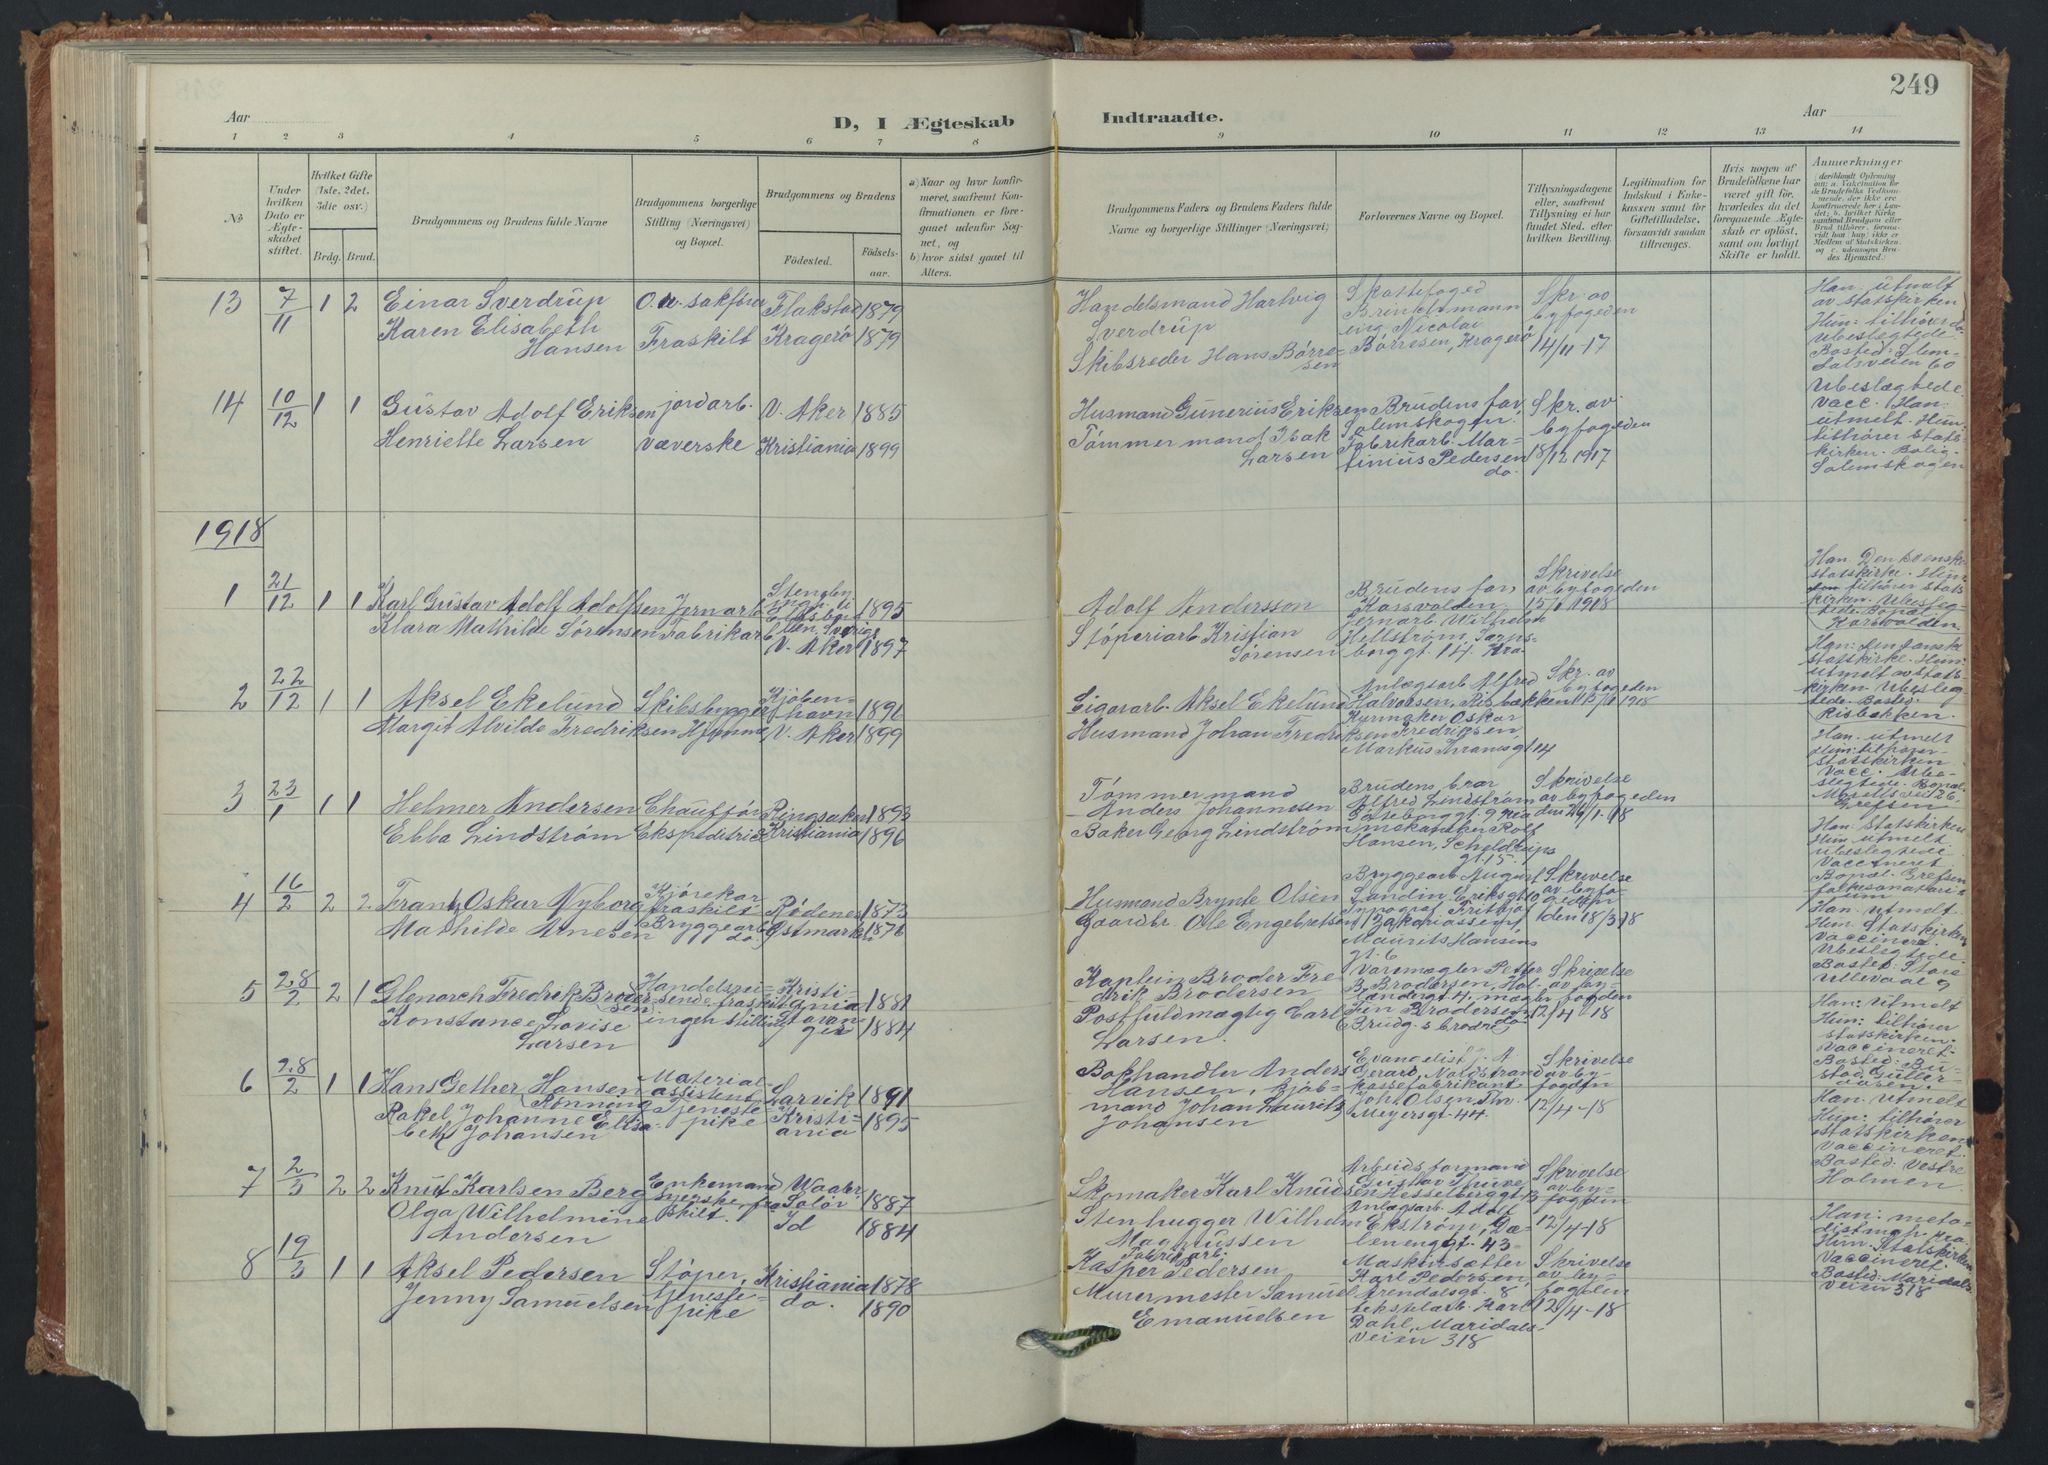 249
Aar
D, I Ægteskab
Indtraadte.
Aar
1 2 3 4 5 6 7 8 9 10 11 12 13 14
No
Under hvilken Dato er Ægteskabet stiftet.
Hvilket Gifte (1ste, 2det, 3die osv.)
Brdg. Brud.
Brudgommens og Brudens fulde Navne
Brudgommens borgerlige Stilling (Næringsvei) og Bopæl.
Brudgommens og Brudens
Fødested.
Fødselsaar.
a) Naar og hvor konfirmeret, saafremt Konfirmationen er foregaaet udenfor Sognet, og
b) hvor sidst gaaet til Alters.
Brudgommens Faders og Brudens Faders fulde Navne og borgerlige Stillinger (Næringsvei)
Forlovernes Navne og Bopæl.
Tillysningsdagene eller, saafremt Tillysning ei har fundet Sted, efter hvilken Bevilling.
Legitimation for Indskud i Enkekassen samt for Giftetilladelse, forsaavidt saadan tiltrænges.
Hvis nogen af Brudefolkene har været gift før, hvorledes da det foregaaende Ægteskab er opløst, samt om lovligt Skifte er holdt.
Anmærkninger
13 7/11 1 2
Einar Sverdrup
Karen Elisabeth
Hansen
O.r.sakfører
Fraskilt
Flakstad 1879
Kragerø 1879
Handelsmand Hartvig
Sverdrup
Skibsreder Hans Børresen
Skattefoged
Brinchmann
eng. Nicolai
Børresen, Kragerø
Skr. av
byfogeden
14/11-17
Han utmelt
av statskirken
Hun: tilhører do
Ubeslegtede
Bosted: Slemdalsveien 60
14 10/12 1 1
Gustav Adolf Eriksen
Henriette Larsen
jordarb.
væverske
V. Aker 1885
Kristiania 1899
Husmand Gunerius Eriksen
Tømmermand Isak
Larsen
Brudens far,
Solemskogen
Fabrikarb. Martinius Pedersen
do.
Skr. av
byfogeden
18/12 1917
Ubeslægtede
vacc. Han
utmelt. Hun:
tilhører statskirken. Bolig
Solemskogen
1918
1 21/12 1 1
Karl Gustav Adolf Adolfsen
Klara Mathilde Sørensen
Jernarb.
Fabrikarb.
1895
V. Aker 1897
Adolf Andersson
Støperiarb Kristian
Sørensen
Brudens far
Korsvolden
Jernarb. Wilhelm
Hellstrøm, Sarpsborggt. 14. Kra-
Skrivelse
av byfogeden
15/1 1918
Han. Den svenske
statskirke. Hun
tilhører statskirken. Ubeslegtede. Bopæl
Korsvolden
2 22/12 1 1
Aksel Ekelund
Margit Alvilde Fredriksen
Skibsbygger
Hjemme
Kjøbenhavn 1896
V. Aker 1899
Cigararb. Aksel Ekelund
Husmand Johan Fredriksen
Anlægsarb Alfred
Halvorsen, Risbakken
Oskar
Fredriksen,
Markus Thranesgt 14
Skr. av
byfogeden
1918
Han: den danske
statskirke. Hun:
utmelt av statskirken. Ubeslegtede. Bosted:
Risbakken.
3 23/1 1 1
Helmer Andersen
Ebba Lindstrøm
Chauffør
Ekspeditrice
Ringsaker 1893
Kristiania 1896
Tømmermand
Anders Johannesen
Baker Georg Lindstrøm
Brudens bror
Alfred Lindstrøm
Gøteborggt. 9
Rolf
Hansen, Scheldrups
gt. 15.
Skrivelse
av byfogeden
den 26/1-18
Han. utmelt
Hun: tilhører
statskirken
Vacc. Ubeslegtede. Bopæl:
Grefsen
4 16/2 2 2
Frantz Oskar Nyborg
Mathilde Arnesen
Kjørekar
fraskilt
Bryggearb
do
Rødenes 1873
Østmarken 1876
Husmand Brynte Olsen
Gaardbr Ole Engebretsen
Bryggearb August
Sundin, Eriksgt 10
Typograf Fritjof
Zakariassen
Maurits Hansens
gt. 6
Skrivelse
av byfogeden
den 18/3 18
Han. Statskirken
Hun utmelt
Ubeslegtede
Vaccineret
Bopæl: Grefsen
folkesanatorium
5 28/2 2 1
Glenarch Fredrik Brodersen
Konstance Lovise
Larsen
Handelsreisende fraskilt
ingen stilling
Kristiania 1881
Stavanger 1884
Kaptein Broder Fredrik Brodersen
Postfuldmægtig Carl
Larsen.
Varemægler Petter
B. Brodersen, Holandergt 4, mægler
Finn Brodersen
(Brudg.s brødre) do
Skrivelse
av byfogden
12/4-18
Han. Utmelt
Hun. Statskirken
Vaccineret.
Ubeslegtede.
Bosted: Store
Ullevaal 9
6 28/2 1 1
Hans Gether Hansen
(Rønning
Rakel Johanne Elisabeth Johansen
Material-
assistent
Tjenestepike
Larvik 1891
Kristiania 1895
Bokhandler Anders
Hansen, kjøbmand Johan Lauritz
Johansen
Evangelist J. A.
Gerard, Nordstrand
kassefabrikant
Joh. Olsen, Thv.
Meyersgt. 44.
Skrivelse
av byfogden
12/4-18
Han: Utmelt
Hun: tilhører
statskirken.
Vaccineret.
7 2/3 2 2
Knut Karlsen Berg
Olga Wilhelmine
Andersen
Enkemand
syerske, fraskilt.
Waaler,
Solør 1887
Id 1884
Skomaker Karl Knudsen
Stenhugger Wilhelm
Magnussen
Arbeidsformand
Gustav Thuve
Hesselberggt. 13
Anlægsarb. Adolf
Ekstrøm,
43
Skrivelse
av byfogden
12/4-18
Han utmelt
Hun: tilhører
statskirken
Vaccineret.
Bosted: Vestre
Holmen.
8 19/3 1 1
Aksel Pedersen
Jenny Samuelsen
Støper,
tjenestepike
Kristiania 1878
do. 1890
Fabrikarb.
Kasper Pedersen
Murermester Samuel
Emanuelsen
Maskinsætter
Karl Pedersen,
Arendalsgt. 8
tekstilarb. Karl
Dahl, Maridalsveien 318
Skrivelse
av byfogden
12/4-18
Han: metodistmgh. Kra
Hun. Statskirken
Vaccineret.
Bosted: Maridalsveien 318